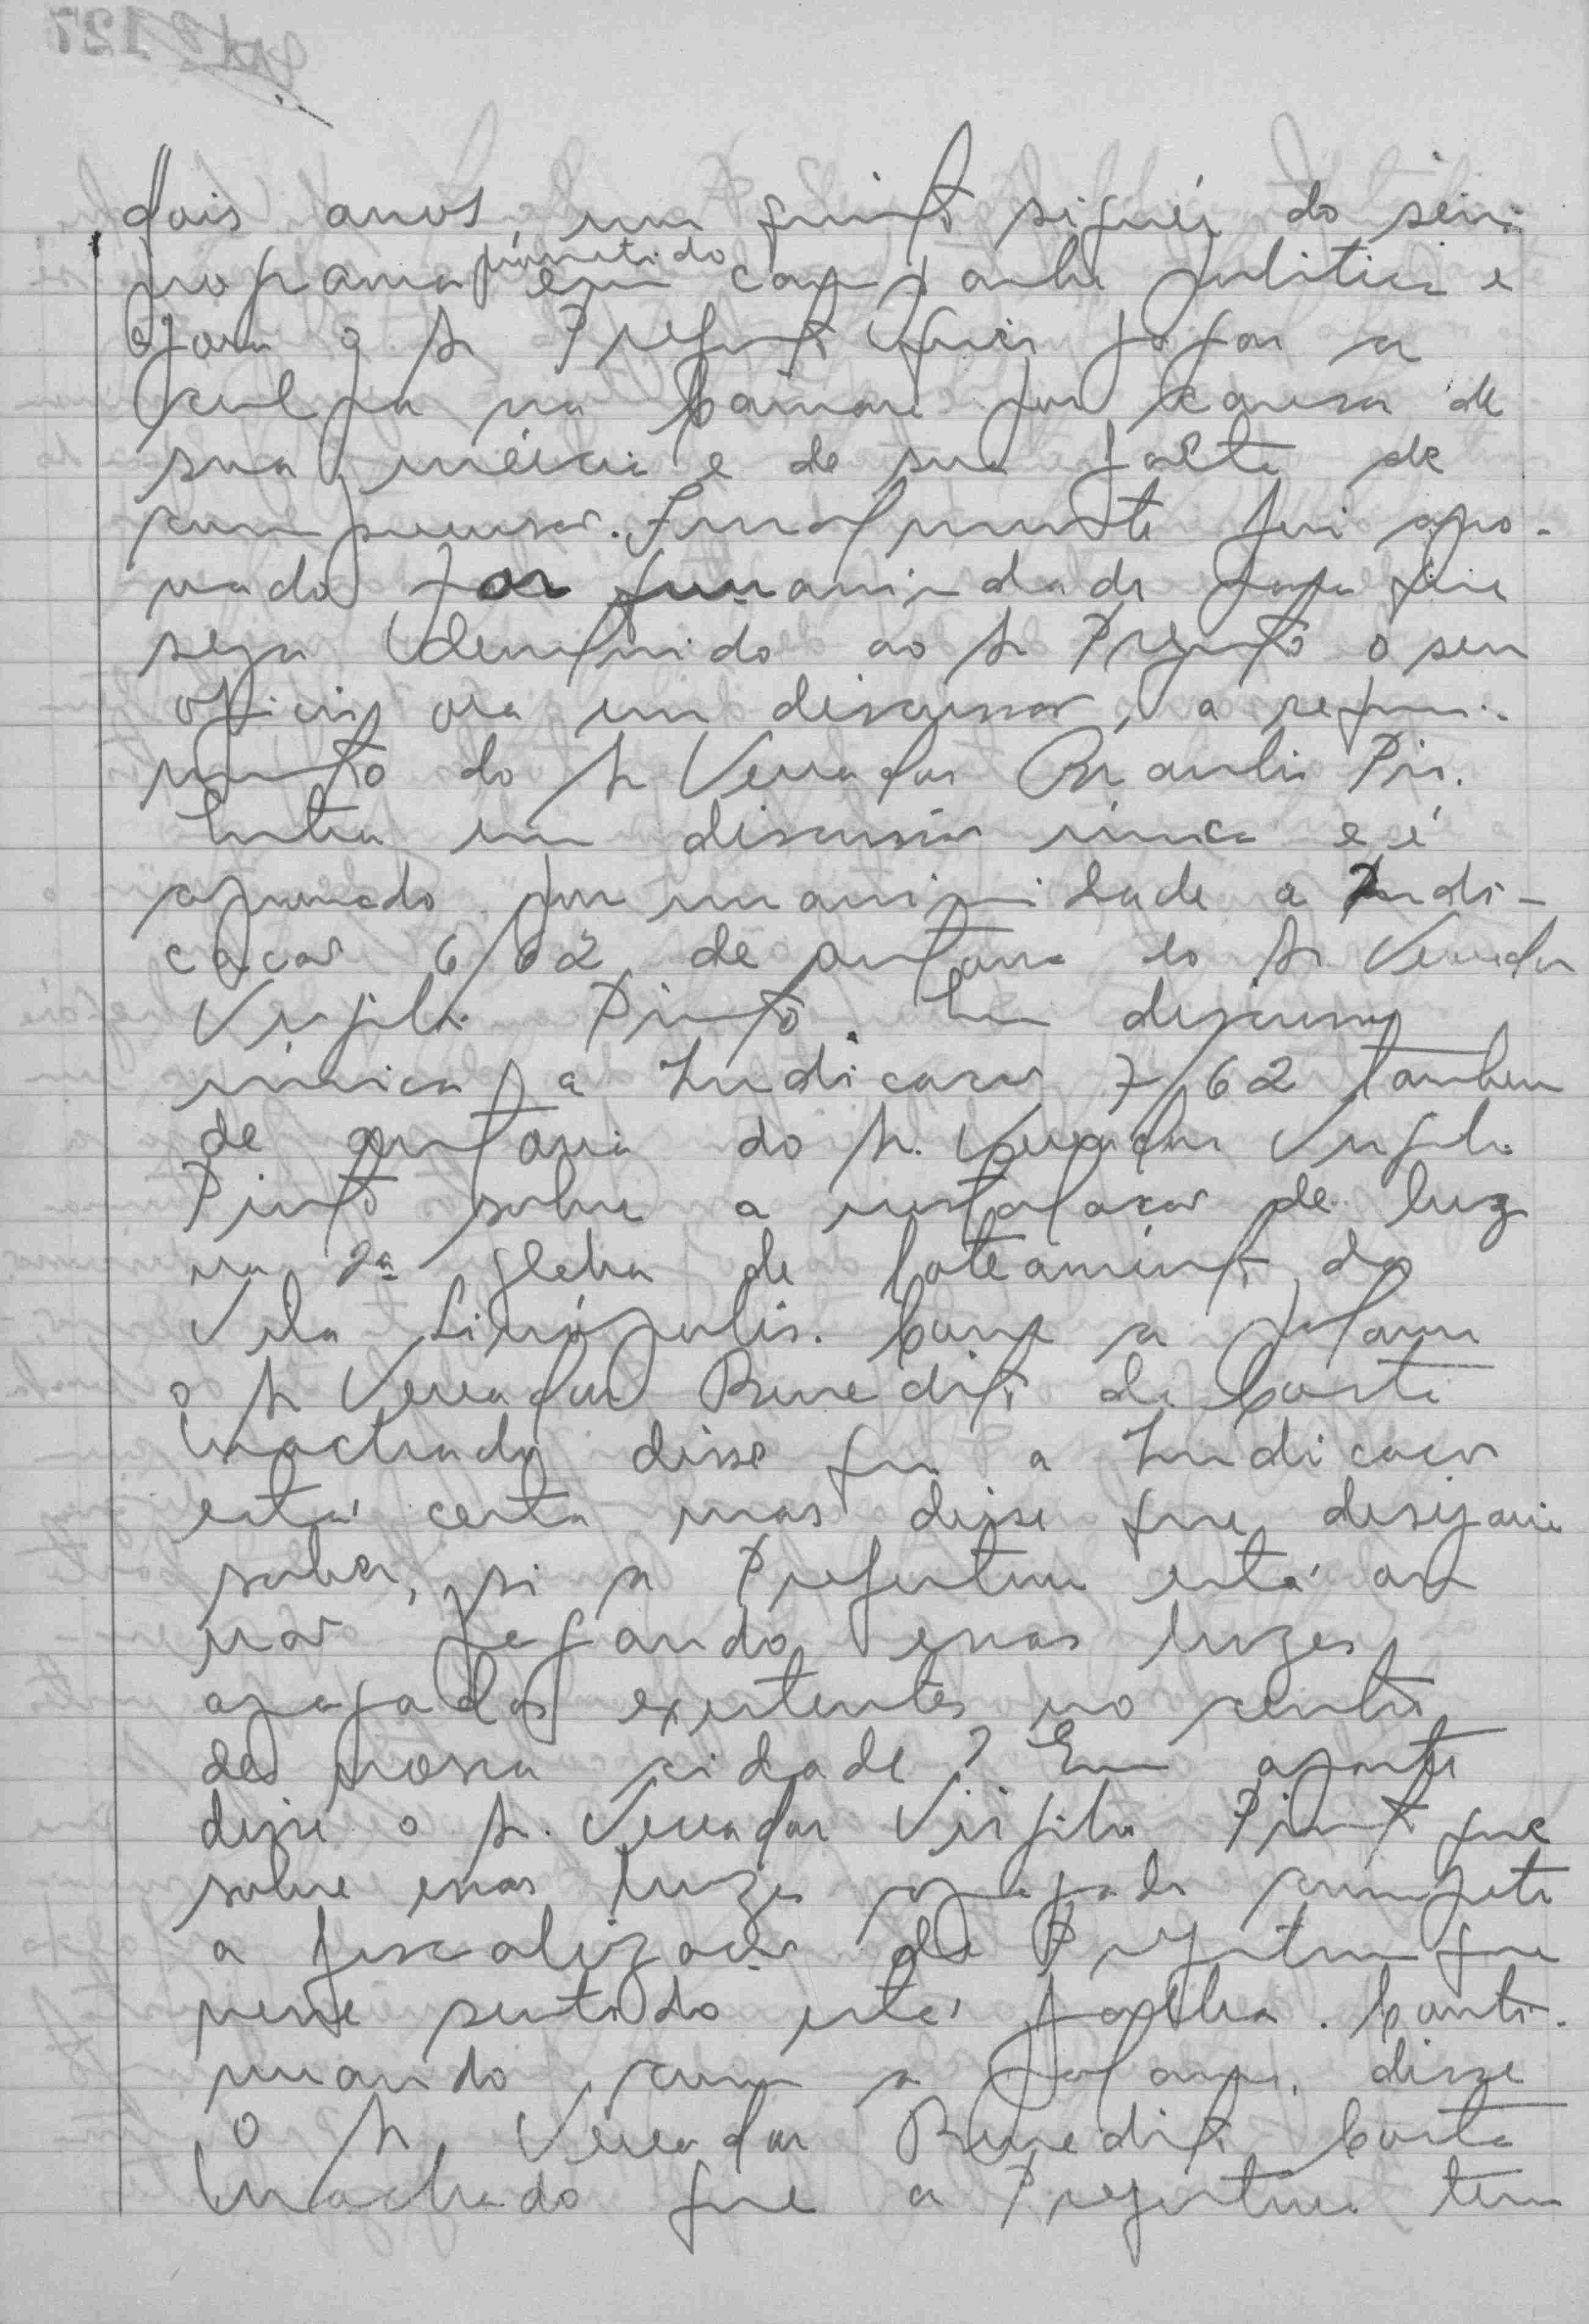 dois anos, um quinto siquér do seu
programa prometido em campanha politica e
agora o Sr Prefeito quer jogar a
culpa na Câmara por causa de
sua inércia e de sua falta de
compreensão. Finalmente foi apro-
vado por unanimidade para que
seja devolvido ao Sr Prefeito o seu
oficio ora em discussão, a requeri-
mento do Sr Vereador Braulio Pio.
Entra em discussão única e é
aprovado por unanimidade a Indi-
cação 6/62 de autoria do Sr Vereador
Virgilio Pinto. Em discussão
única a Indicação 7/62 tambem
de autoria do Sr. Vereador Virgilio
Pinto sobre a instalação de luz
na 2ª gleba de loteamento da
Vila Linópolis. Com a palavra
o Sr Vereador Benedito da Costa
Machado disse que a Indicação
está certa mas disse que desejaria
saber, si a Prefeitura está ou
não pagando essas luzes
apagadas existentes no centro
de nossa cidade? Em aparte
disse o Sr. Vereador Virgilio Pinto que
sobre essas luzes apagada compete
a fiscalização da Prefeitura que
nesse sentido está falha. Conti-
nuando com a palavra, disse
o Sr Vereador Benedito Costa
Machado que a Prefeitura tem